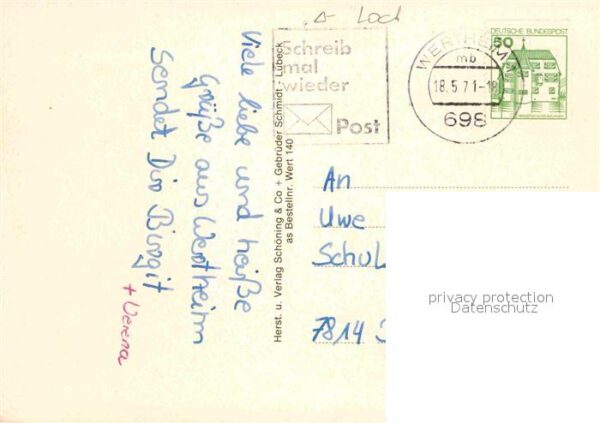 Lach
Schreib
mal
wieder
Post
WERTHEIM
mb
18.5.71-18
698
DEUTSCHE BUNDESPOST
50
Viele liebe und heiße
Grüße aus Wertheim
sendet Dir Birgit
+ Verena
Herst. u. Verlag Schöning & Co + Gebrüder Schmidt · Lübeck
as Bestellnr. Wert 140
An
Uwe
Schul
7814
privacy protection
Datenschutz